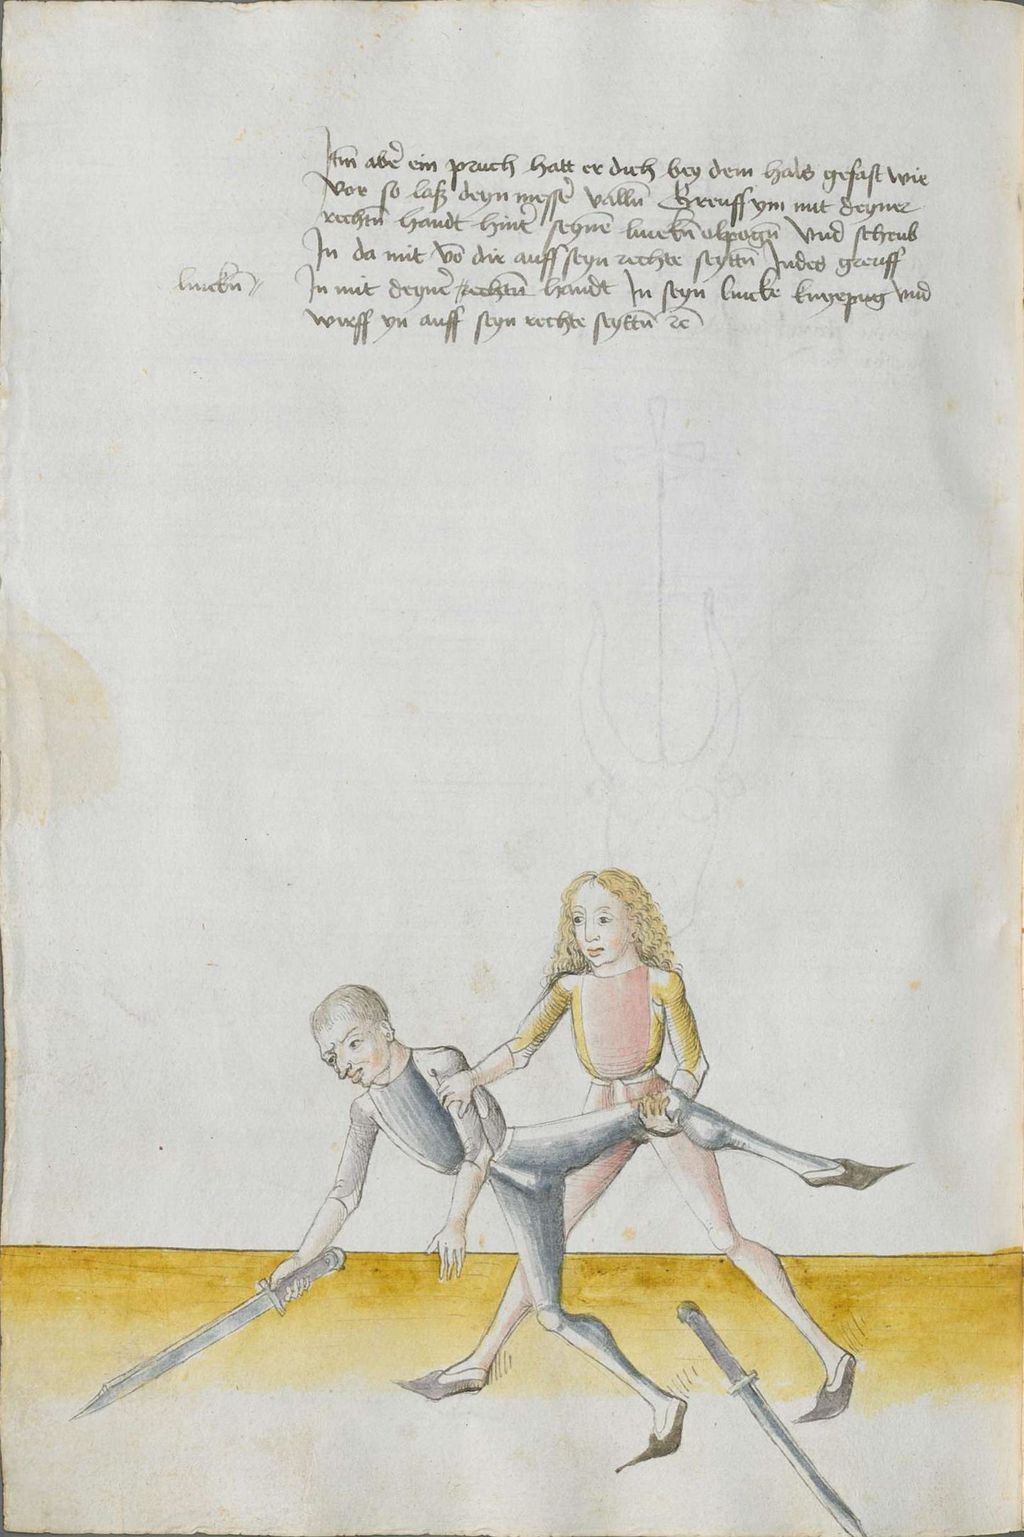 Itm̄ aber ein pruch hatt er dich bey dem hals gefast wie
vor so laß deyn messer valln̄ Greuff ym mit deyner
rechtn̄ handt hinter seynē linckn̄ elpogn̄ vnd scheub
In da mit vō dir auff seyn rechte seyttn̄ Indes greuff
linckn̄
In mit deyner rechtn̄ handt In seyn lincke knyepug vnd
wirff yn auff seyn rechte seyttn̄ ꝛc̄